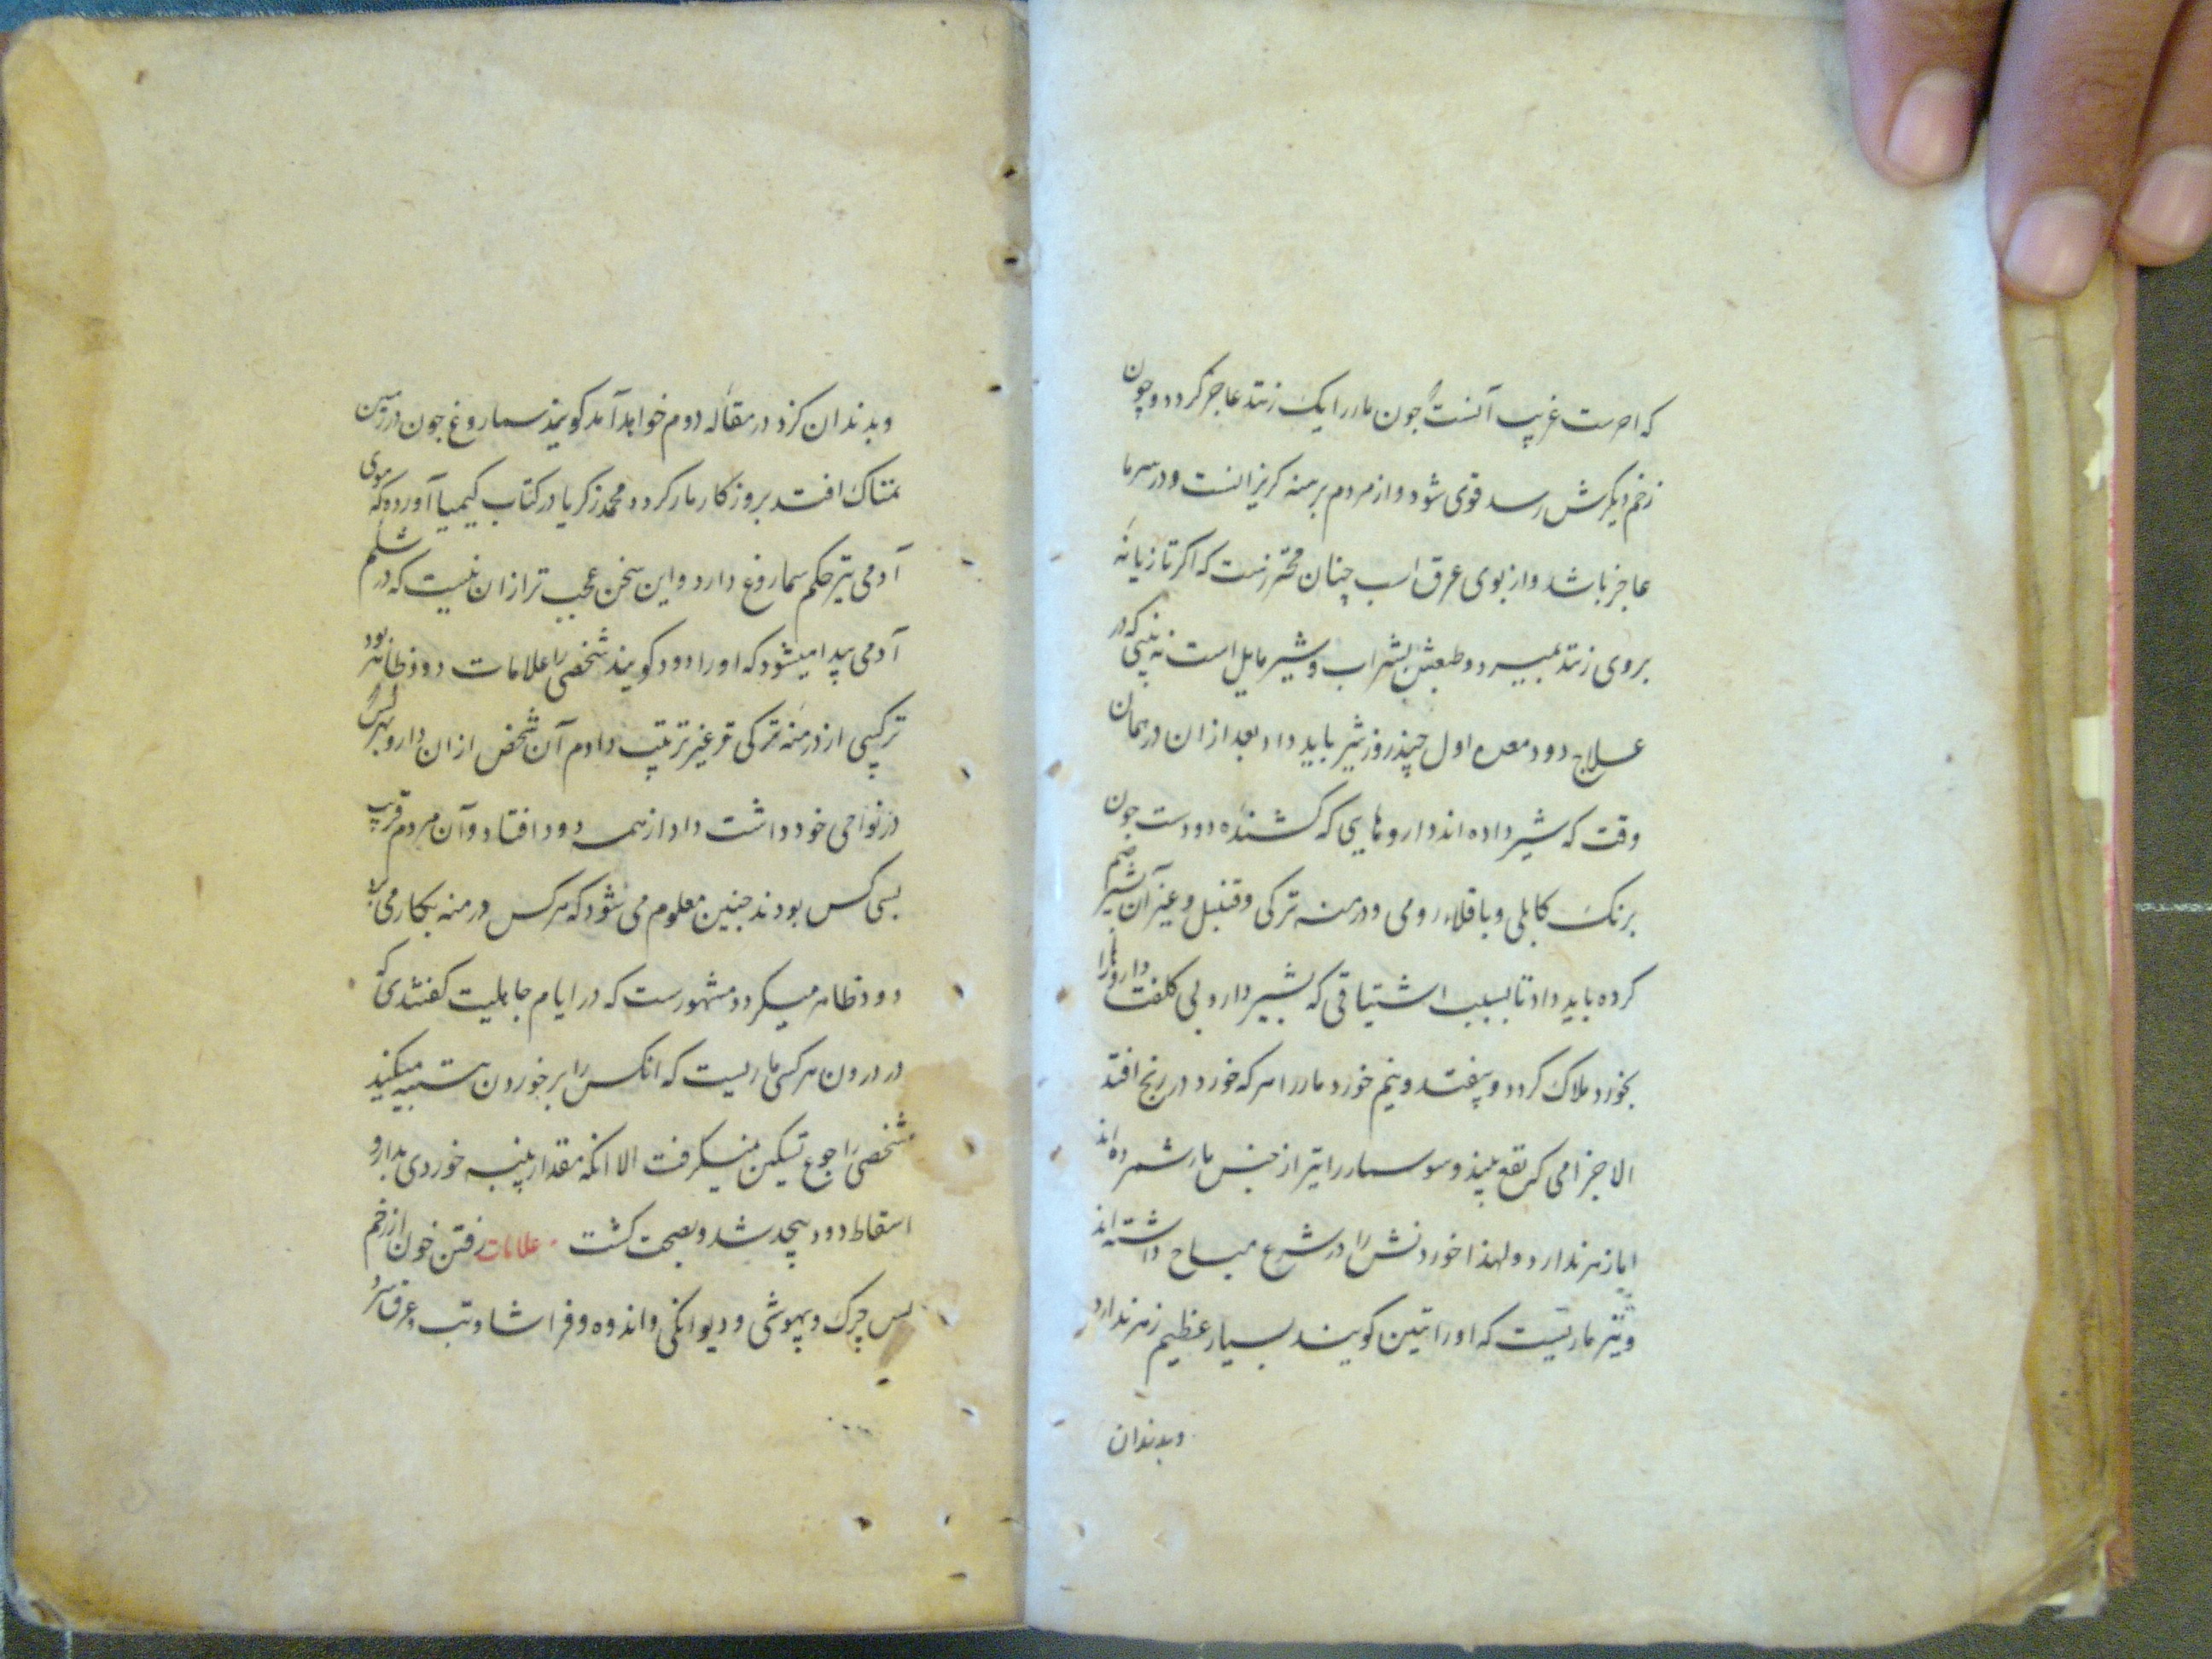 که امرست غریب آنست جون مار را یک زنند عاجز کردد و چون
زخم دیکرش رسد قوی شود و از مردم برهنه کریزانست و در سرما
عاجز باشد و از بوی عرق اسب چنان محترزست که اکر تازیانه
بروی زنند بمیرد و طبعش بشراب و شیر مایل است نه بینی که در
علاج دود معده اول چند روز شیر باید داد بعد از ان در همان
وقت که شیر داده اند داروهایی که کشنده دودست جون
برنک کابلی و باقلاء رومی و درمنه ترکی و قنبیل و غیر آن ضم شیر
کرده باید داد تا بسبب اشتیاقی که بشیر دارد بی کلفت داروها را
بخورد هلاک کردد و بیفتد و نیم خورد مار را هر که خورد در رنج افتد
الا جذامی که نفع بیند و سوسمار را نیز از جنس مار شمرده اند
اما زهر ندارد و لهذا خوردنش را در شرع مباح داشته اند
و نیز ماریست که او را تنین کویند بسیار عظیم زهر ندارد
وبدندان
وبدندان کزد در مقاله دوم خواهد آمد کویند سماروغ جون در زمین
نمناک افتد بروزکار مار کردد محمد زکریا در کتاب کیمیا آورده که موی
آدمی نیز حکم سماروغ دارد و این سخن عجب تر از ان نیست که در شکم
آدمی پیدا میشود که او را دود کویند شخصی را علامات دود ظاهر بود
ترکیبی از درمنه ترکی و غیر ترتیب دادم آن شخص از ان دارو بهر کس
در نواحی خود داشت داد از همه دود افتاد و آن مردم قریب
بسی کس بودند جنین معلوم می شود که هر کس درمنه بکار می
دود ظاهر میکردد مشهورست که در ایام جاهلیت کفتندی که
در درون هر کسی ماریست که انکس را بر خوردن تنبیه میکند
شخصی را جوع تسکین نمیکرفت الا انکه مقدار پنبه خوردی بدارو
اسقاط دود بیحد شد و بصحت کشت علامات رفتن خون از زخم
بس چرک و بیهوشی و دیوانکی و اندوه و فراشا و تب و عرق سرد